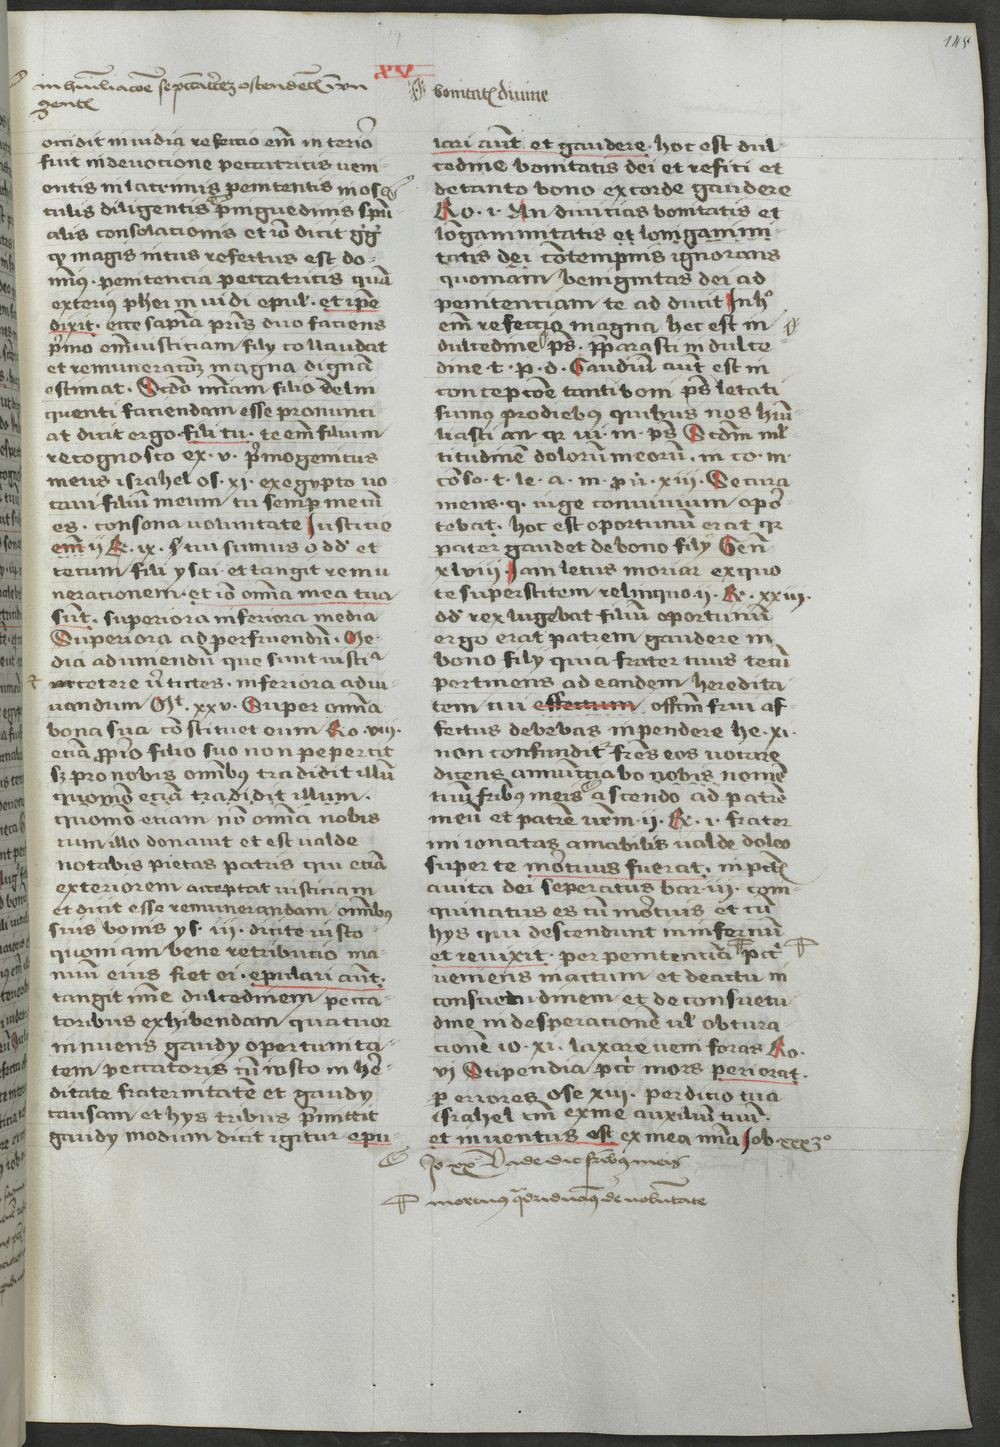 145
XV
in humiliacōe se pctātricẽ ostendētꝭ
gentꝭ
bonitatꝭ divine
occidit invidia refectio em̄ interior̄
fuit in devocione peccatricis veni-
entis in lacrimis penitentis in os-
culis diligentis pinguedinis sp̄ū-
alis consolacionis et iō dicit gͥgͥ
qͥ magis intus refectus est do-
minꝰ penitencia peccatricis quā
exterius phei invidi epul. et ip̄e
dixit. ecce sapīa pr̄is duo faciens
pͥmo em̄ iusticiam filij collaudat
et remuneracōꝫ magna dignā
estimat. Scdō mīam filio delin
quenti faciendam esse pronunci
at dicit ergo. fili tu. te em̄ filium
recognosco ex. v. pͥmogenitus
meus israhel os. xi. ex egypto vo-
cavi filiū meum tu semp̄ mecum
es. consona voluntate Iusticie
em̄ ii R. ix. tui sumus o dd et
tecum fili ysai et tangit remu
nerationem. et iō om̄ia mea tua
sūt. superiora inferiora media
Superiora ad perfruendū. Me-
dia ad utendū que sunt iusticia
et cetere v̄tutes. inferiora adiu-
vandum Mt. xxv. Super om̄ia
bona sua cōstituet eum Ro. viii.
etiā ꝓpͥo filio suo non pepercit
sꝫ pro nobis om̄ibꝰ tradidit illū
quomō eciā tradidit illum.
quomō etiam nō om̄ia nobis
cum illo donavit et est valde
notabis pietas patris qui eciā
exteriorem acceptat iusticiam
et dicit esse remunerandam om̄ibꝰ
suis bonis ys. iii. dicite iusto
quoniam bene retributio ma-
nuū eius fiet ei. epulari aūt.
tangit hīc dulcedinem pecca-
toribus exhibendam quatuor
innuens gaudij oportunita-
tem peccatoris cū iusto in he-
ditate fraternitatē et gaudij
causam et hys tribus pͥmittit
gaudij modum dicit igitur epu-
lari aūt et gaudere. hoc est dul-
cedine bonitatis dei et refici et
de tanto bono ex corde gaudere
Ro. i. An divicias bonitatis et
lōganimitatis et longanimi-
tatis dei cōtempnis ignorans
quoniam benignitas dei ad
penitenciam te adducit In hͦ
em̄ refectio magna hec est in
dulcedine ps. p̄parasti in dulce
dine t. p. d. Gaudiū aūt est in
concepcōe tanti boni ps letati
sumꝰ pro diebꝰ quibus nos hūi-
liasti an qͥ vi. m. ps Scdm̄ ml̄
titudinem dolorū meorū. in co. m.
cōso. t. le. a. m. pͦu. xiii. Secura
mens. q. iuge convivium opor-
tebat. hoc est oportunū erat qͥ
pater gaudet de bono filij Gen̄
xlviii. Iam letus moriar ex quo
te superstitem relinquo. ii. R. xxiii.
dd rex lugebat filiū oportunū
ergo erat patrem gaudere in
bono filij quia frater tuus tecū
pertinens ad eandem heredita
tem cui effectum offm̄ frui af
fectus debebas inpendere he. xi.
non confundit̄ fr̄es eos vocare
dicens annūciabo nobis nomē
tuū fribꝰ meis ascendo ad patrē
meū et patrē vr̄m. ii. R. i. frater
mi ionatas amabilis valde doleo
super te mortuus fuerat. in pctꝭ
a vita dei seperatus bar. iii. com
quinatus es cū mortuis et cū
hys qui descendunt in infernū
et revixit. per penitenciā pctī
veniens in actum et de actu in
consuetudinem et de consuetu
dine in desperacionē vl obtura
cionē io. xi. laxare veni foras Ro.
vi Stipendia pctī mors perierat.
ꝑ errores ose xiii. perdicio tua
israhel tm̄ ex me auxiliū tuū.
et inventus est ex mea mīa Iob xxx3ͦ
Jo xx Vade dic fribꝰ meis
mortuus qͣdriduanꝰ de voluntate